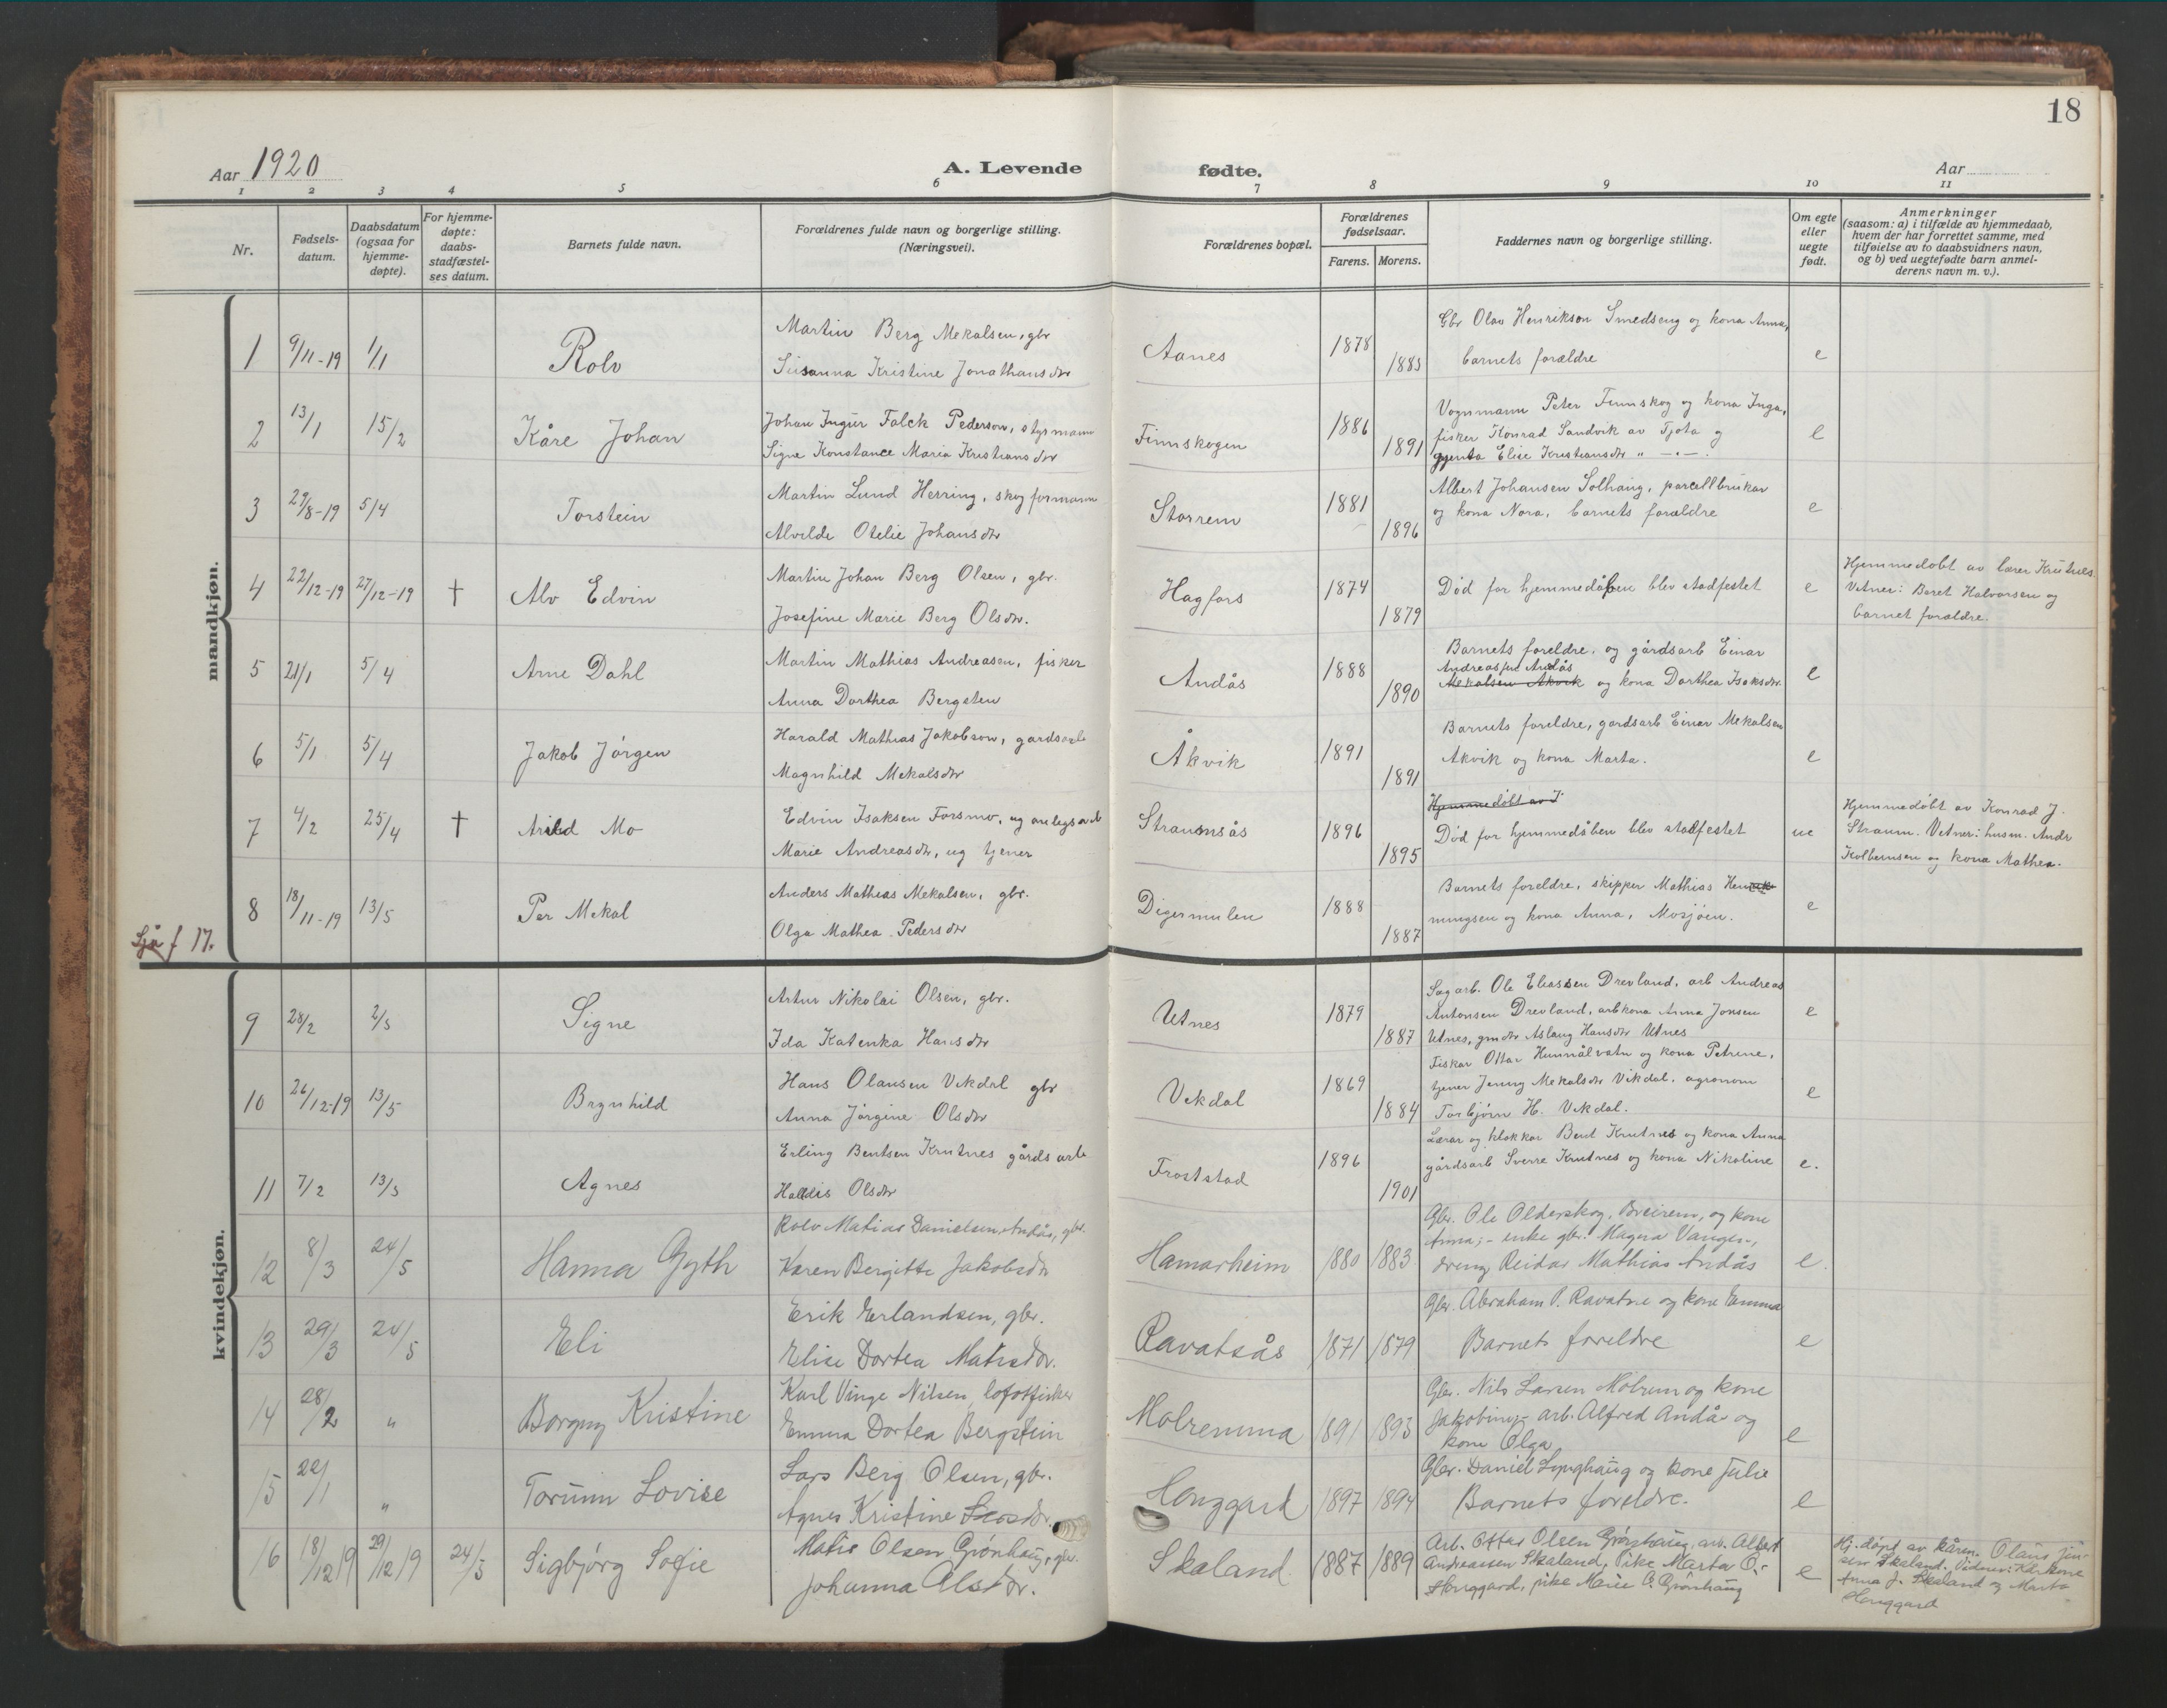 18
Aar 1920
A. Levende fødte.
Aar
1 2 3 4 5 6 7 8 9 10 11
Nr.
Fødsels-
datum.
Daabsdatum
(ogsaa for
hjemme-
døpte).
For hjemme-
døpte:
daabs-
stadfæstel-
ses datum.
Barnets fulde navn.
Forældrenes fulde navn og borgerlige stilling.
(Næringsvei).
Forældrenes bopæl.
Forældrenes
fødselsaar.
Farens. Morens.
Faddernes navn og borgerlige stilling.
Om egte
eller
uegte
født.
Anmerkninger
(saasom: a) i tilfælde av hjemmedaab,
hvem der har forrettet samme, med
tilføielse av to daabsvidners navn,
og b) ved uegtefødte barn anmel-
derens navn m. v.).
mandkjøn.
1 9/11-19 1/1 Rolv
Martin Berg Mekalsen, gbr
Susanna Kristine Jonathansdtr
Aanes 1878 1883
Gbr Olav Henrikson Smedseng og kona Anna,
barnets forældre
e
2 13/1 15/2 Kåre Johan
Johan Ingvar Falck Pederson, styrmann
Signe Konstance Maria Kristiansdtr
Finnskogen 1886 1891
Vognmann Peter Finnskog og kona Inga,
fisker Konrad Sandvik av Tjøta og
gjenta Elise Kristiansdtr " -"-
e
3 29/8-19 5/4 Torstein
Martin Lund Herring, skogformann
Alvilde Otelie Johansdtr
Storrem 1881 1896
Albert Johansen Solhaug, parcellbrukar
og kona Nora, barnets forældre
e
4 22/12-19 27/12-19 † Alv Edvin
Martin Johan Berg Olsen, gbr.
Josefine Marie Berg Olsdtr.
Hagfors 1874 1879
Død før hjemmedåben blev stadfestet
e
Hjemmedøbt av lærer Krutnes.
Vitner: Beret Halvorsen og
barnet forældre.
5 21/1 5/4 Arne Dahl
Martin Mathias Andreasen, fisker
Anna Dorthea Bergsten
Andås 1888 1890
Barnets foreldre, og gårdsarb Einar
Andreassen Andås
Mekalsen Åkvik og kona Dorthea Isaksdtr.
e
6 5/1 5/4 Jakob Jørgen
Harald Mathias Jakobson, gardsarb
Magnhild Mekalsdtr
Åkvik 1891 1891
Barnets foreldre, gardsarb Einar Mekalsen
Åkvik og kona Marta.
e
7 4/2 25/4 † Arild Mo
Edvin Isaksen Forsmo, ug anlegsarb
Marie Andreasdtr, ug tjener
Straumsås 1896 1895
Hjemmedøbt av J
Død før hjemmedåben blev stadfestet
ue
Hjemmedøbt av Konrad J.
Straum. Vitner: husm. Andr
Kolbeinsen og kona Mathea.
8 18/11-19 13/5 Per Mekal
Anders Mathias Mekalsen, gbr.
Olga Mathea Pedersdtr
Digermulen 1888 1887
Barnets foreldre, skipper Mathias Henrik
ningsen og kona Anna, Mosjøen.
e
Sjå f 17.
kvindekjøn.
9 28/2 2/5 Signe
Artur Nikolai Olsen, gbr.
Ida Katenka Hansdtr
Utnes 1879 1887
Sagarb. Ole Eliassen Drevland, arb Andreas
Antonsen Drevland, arbkona Anna Jonsen
Utnes, gmdtr Aslaug Hansdtr Utnes
e
10 26/12-19 13/5 Brynhild
Hans Olausen Vikdal gbr
Anna Jørgine Olsdtr
Vikdal 1869 1884
Fisker Ottar Hunnålvatn og kona Petrine,
tjener Jenny Mekalsdtr Vikdal, agronom
Torbjørn H. Vikdal.
e
11 7/2 13/5 Agnes
Erling Bentsen Krutnes gårdsarb
Halldis Olsdtr
Froststad 1896 1901
Lærar og klokkar Bent Krutnes og kona Anna
gårdsarb Sverre Krutnes og kona Nikoline
e.
12 8/3 24/5 Hanna Gyth
Rolv Matias Danielsen Andås, gbr.
Karen Bergitte Jakobsdtr
Hamarheim 1880 1883
Gbr. Ole Olderskog, Breirem, og kone
Anna; - enke gbr. Magna Vanges-,
dreng Reidar Mathias Andås
e.
13 29/3 24/5 Eli
Erik Erlandsen, gbr.
Elise Dortea Matisdtr.
Ravatsås 1871 1879
Gbr. Abraham P. Ravatne og kone Emma
Barnets foreldre
e
14 28/2 " Borgny Kristine
Karl Vinge Nilsen, lofotfisker
Emma Dortea Bergstein
Molremma 1891 1893
Gbr. Nils Larsen Molrem og kone
Jakobine;- arb. Alfred Andås og
kone Olga
e
15 22/1 " Torunn Lovise
Lars Berg Olsen, gbr.
Agnes Kristine
Honggard 1897 1894
Gbr. Daniel Lynghaug og kone Julie
Barnets foreldre.
e
16 18/12 19 29/12 19 24/5 Sigbjørg Sofie
Matis Olsen Grønhaug, gbr.
Johanna Olsdtr.
Skaland 1887 1889
Arb. Ottar Olsen Grønhaug, arb. Albert
Andreassen Skaland, Pike Marta O.-
Honggard, pike Marie O. Grønhaug
e
Hj.døpt av kåren. Olaus Jen-
sen Skaland. Vidner: Kårkone
Anna J. Skaland og Marta
Honggard